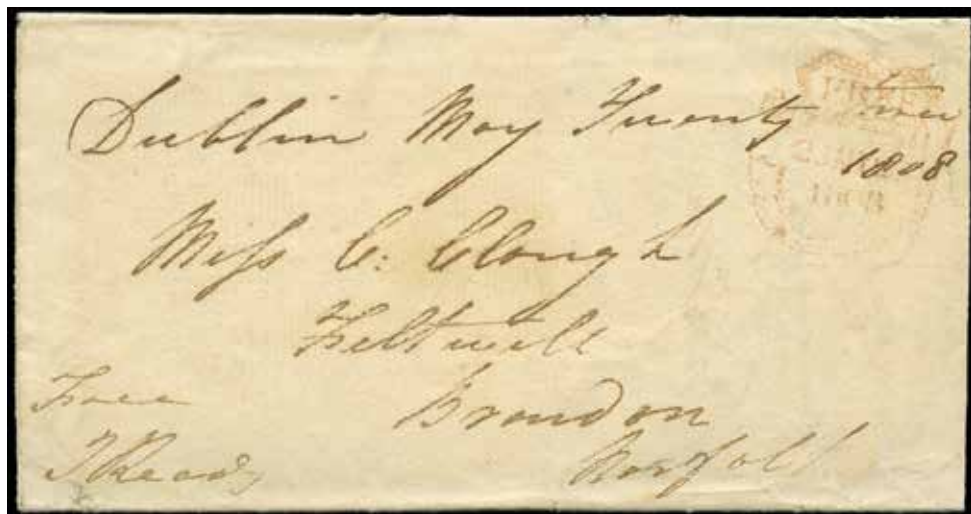 Dublin May Twenty
1808
Miss C: Clough
Feltwell
Brandon
Norfolk
Free